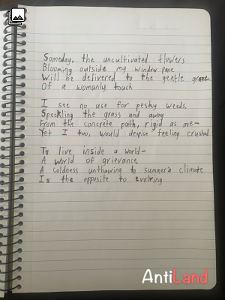 Someday, the uncultivated flowers
Blooming outside my window pane
Will be delivered to the gentle grove
Of a womanly touch
I see no use for peshy weeds
Speckling the grass and away
From the concrete path, rigid as me-
Yet I too, would despise feeling crushed
To live inside a world-
A world of grievance
A coldness unthawing to summer's climate
Is the opposite to evolving.
AntiLand